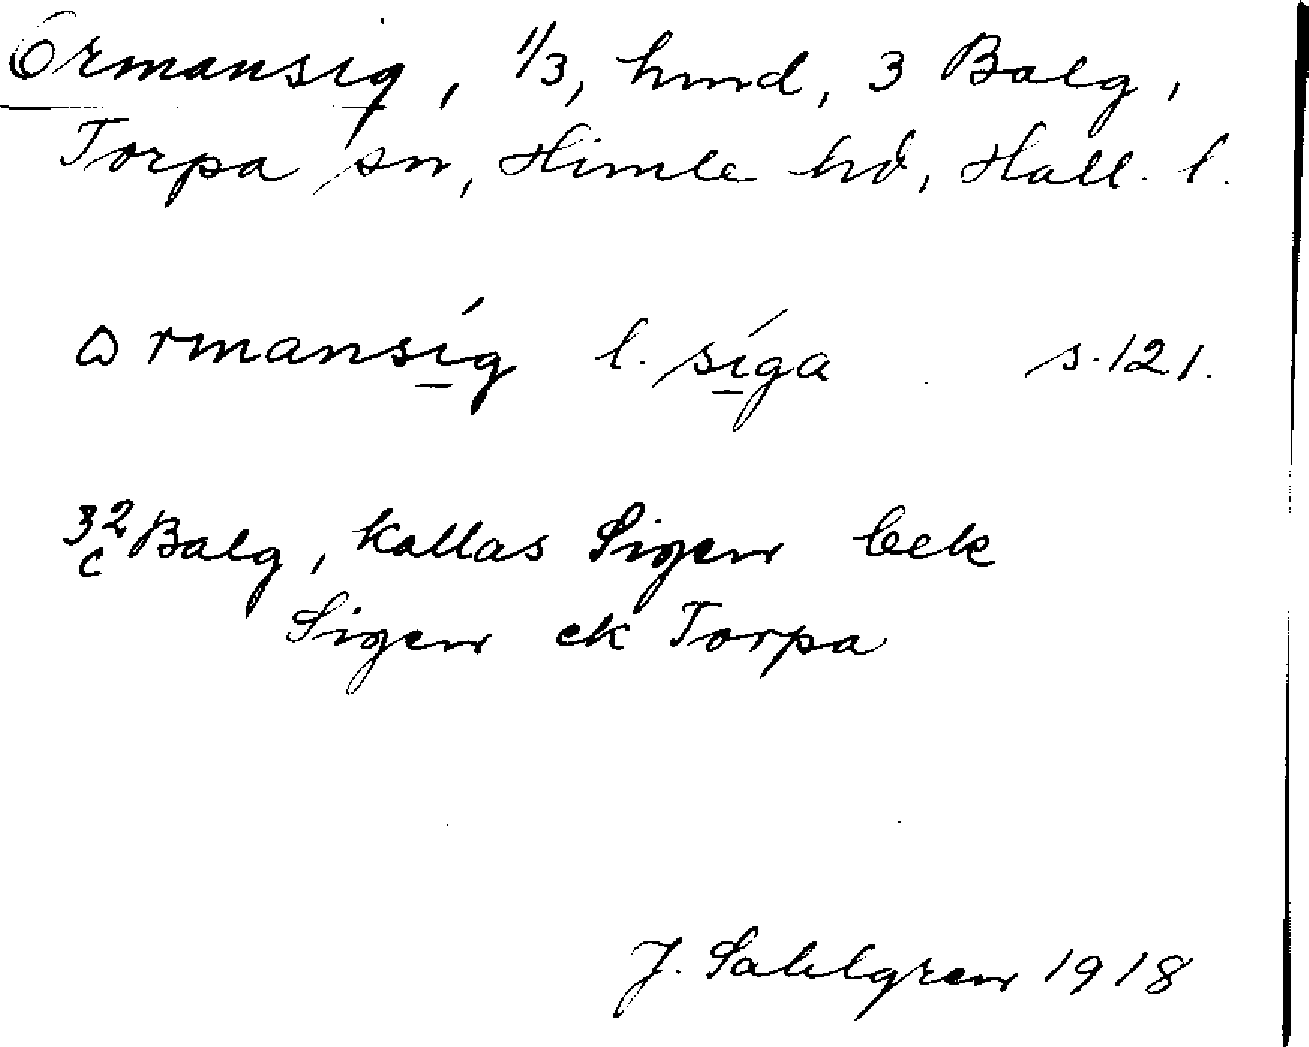 Ormansig, 1/3, hmd, 3 Balg,
Torpa sn, Himle hd, Hall. l.
ormansíg l. síga s. 121.
3 2 c Balg, kallas Sigen bek
Sigen ek Torpa
J. Sahlgren 1918